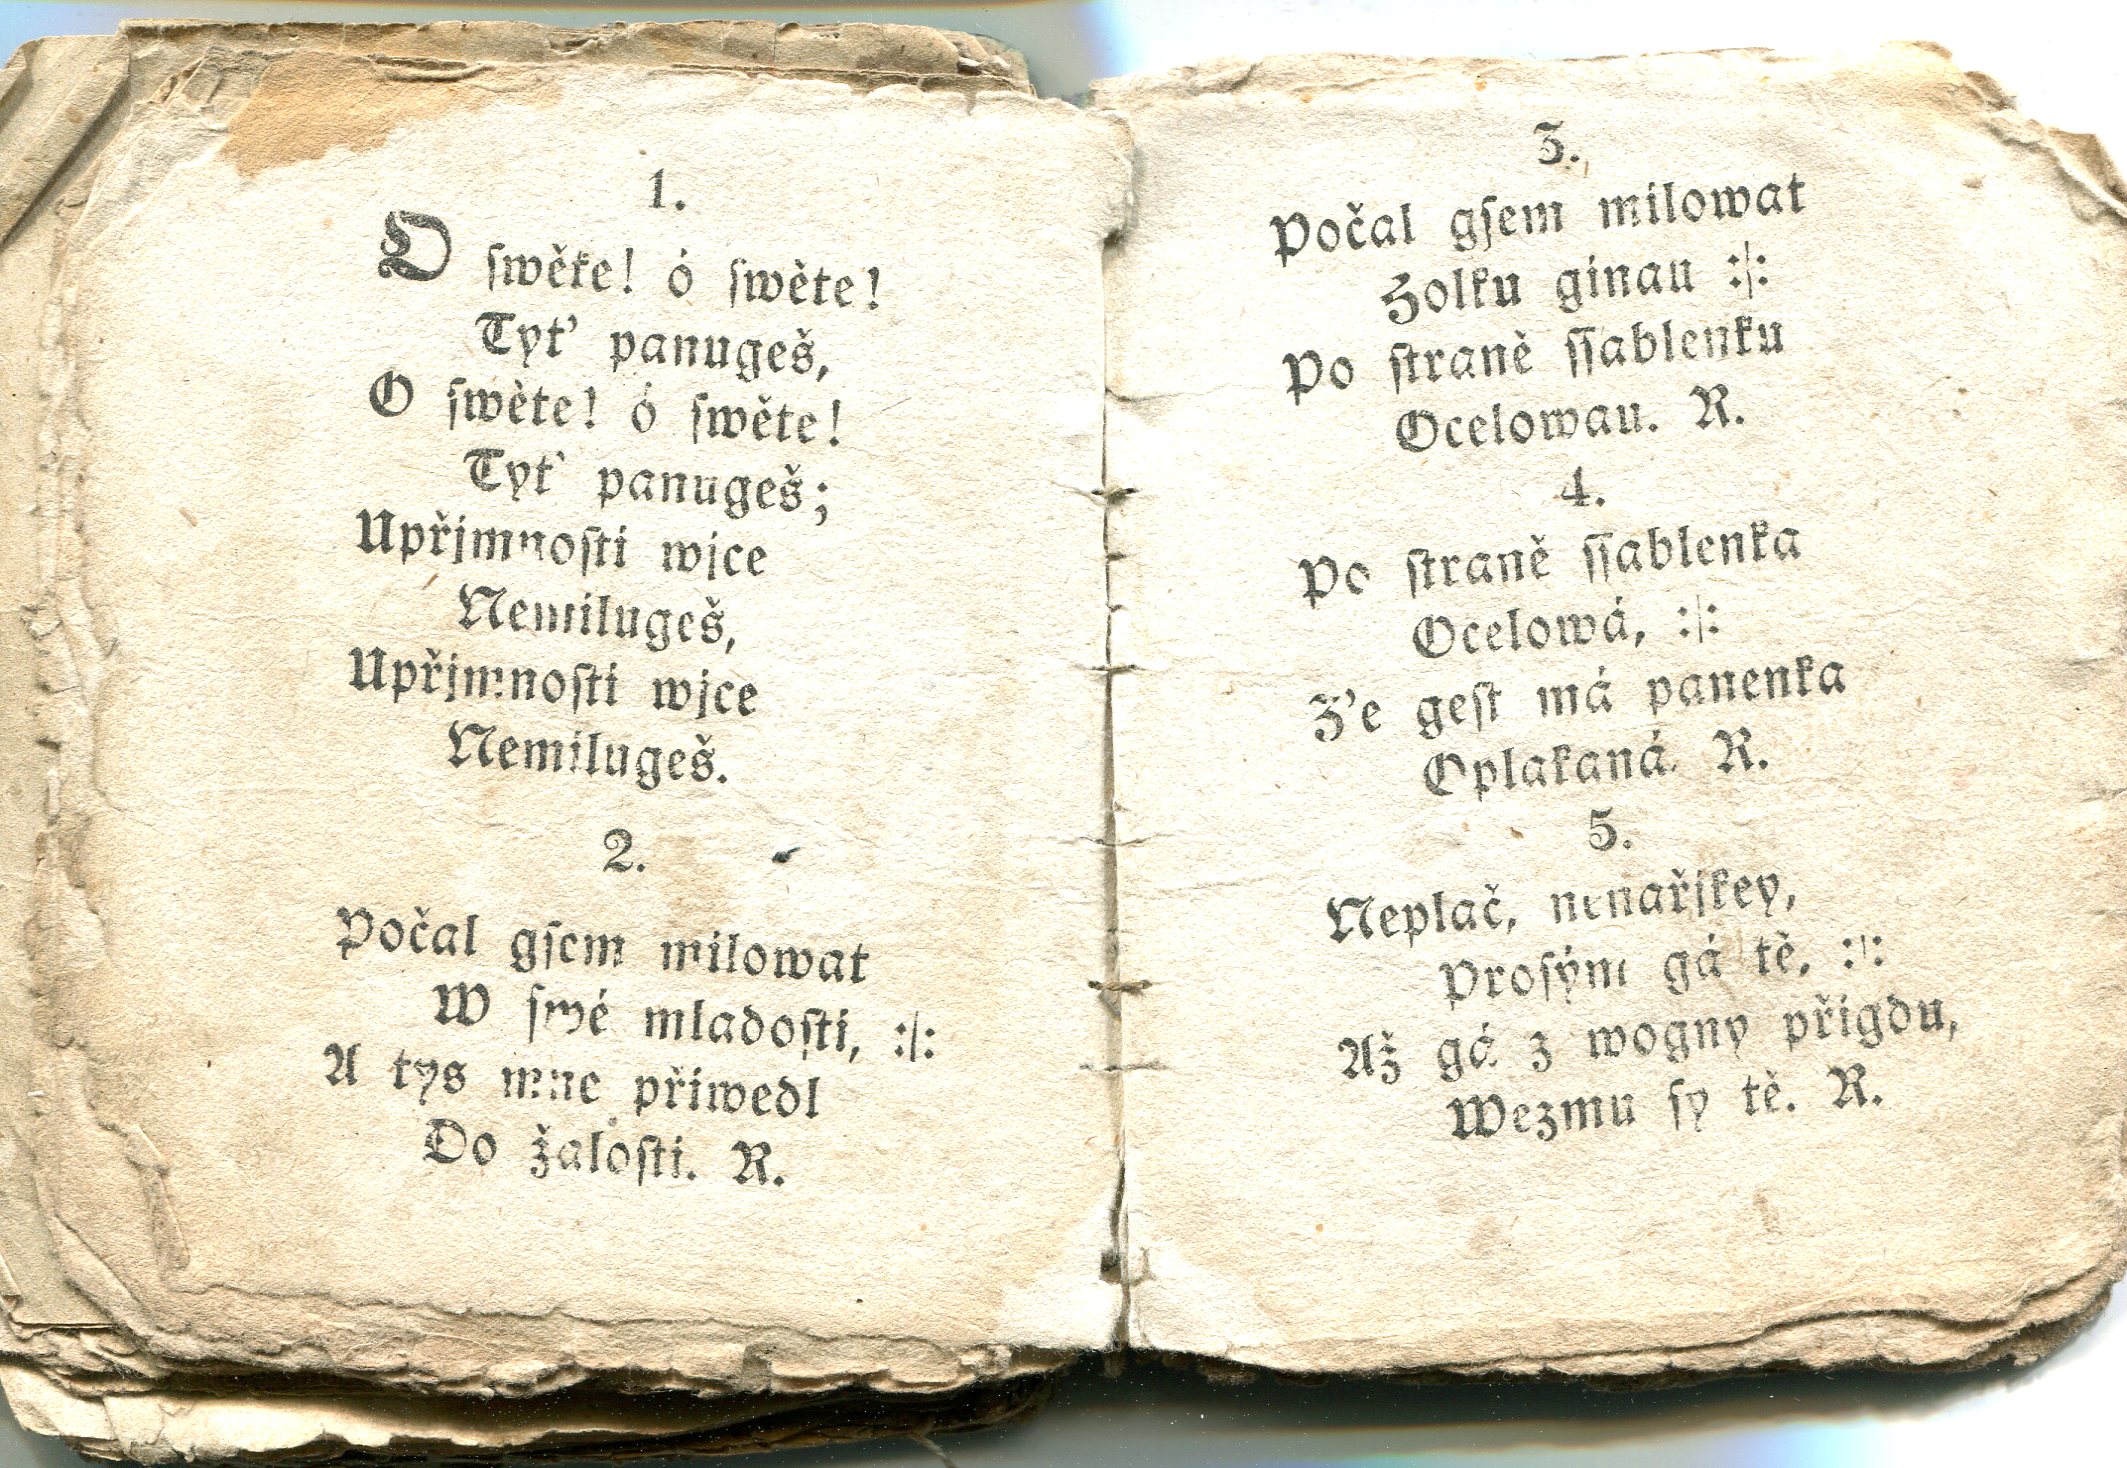 1.
O ſwěte! ó ſwěte!
Tyť panugeš,
O ſwěte! ó ſwěte!
Tyť panugeš;
Upřjmnoſti wjce
Nemilugeš,
Upřjmnoſti wjce
Nemilugeš.
2.
Počal gſem milowat
W ſwé mladoſti, :|:
A tys mne přiwedl
Do žaloſti. R.
3.
Počal gſem milowat
Holku ginau :|:
Po ſtraně ſſablenku
Ocelowau. R.
4.
Po ſtraně ſſablenka
Ocelowá, :|:
Z'e geſt má panenka
Oplakaná. R.
5.
Neplač, nenařjkey,
Proſým gá tě, :|:
Až gá z wogny přigdu,
Wezmu ſy tě. R.